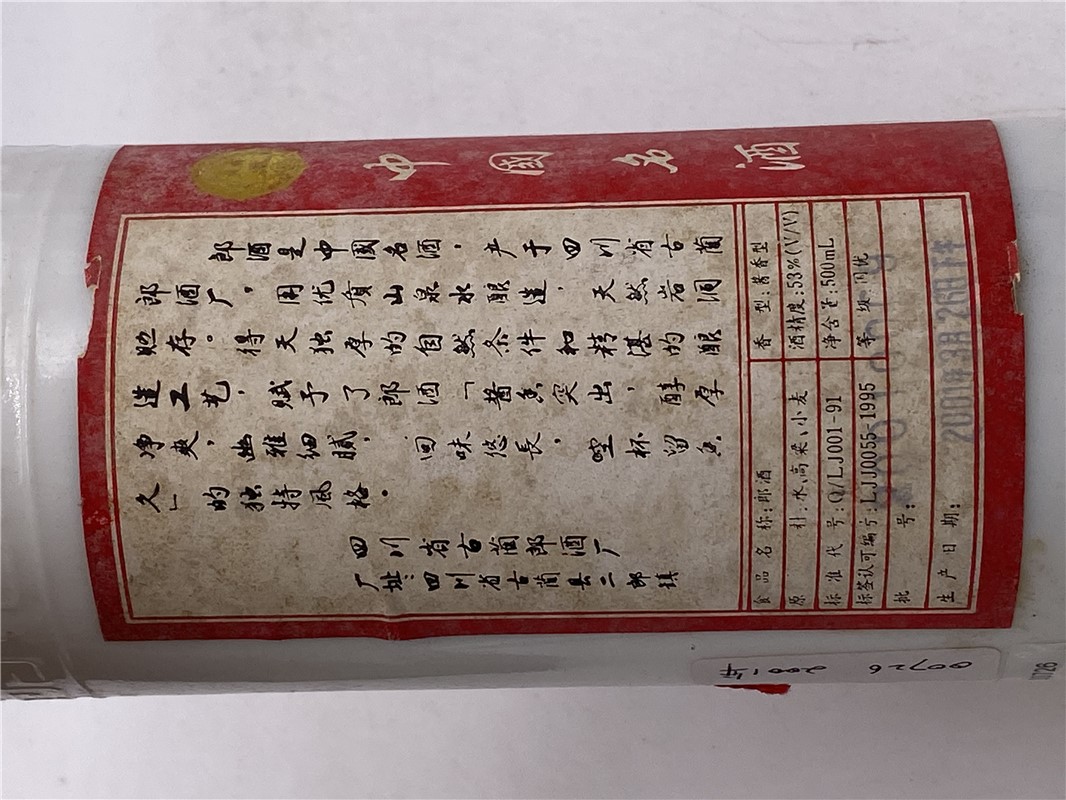 中國名酒
郎酒是中國名酒，产于四川省古蔺
郎酒厂，用优质山泉水酿造，天然岩洞
贮存。得天独厚的自然条件和精湛的酿
造工艺，赋予了郎酒「酱香突出，醇厚
净爽，幽雅细腻，回味悠长，空杯留香
久」的独特風格。
四川省古蔺郎酒厂
厂址：四川省古蔺县二郎镇
食品名称:郎酒 香型:酱香型
原料:水、高粱、小麦 酒精度:53%(V/V)
标准代号:Q/LJ001-91 净含量:500mL
标签认可编号:LJJ0055-1995 等级:国优
批号:
生产日期: 2001年3月26日
2001年 00726